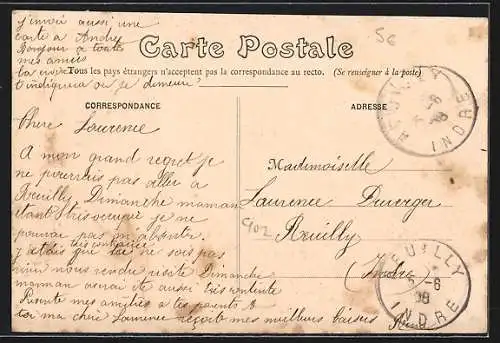 j'envoi aussi une
carte à André
Bonjour à toutes
mes amies
La croix
t'indiquera ou je demeure
Carte Postale
Tous les pays étrangers n'acceptent pas la correspondance au recto. (Se renseigner à la poste)
56
CORRESPONDANCE
ADRESSE
Chère Laurence
A mon grand regret je
ne pourrais pas aller à
Reuilly Dimanche maman
étant très occupé je ne
pouvai pas m'absenter.
très contrariée
j'etais que tu ne sois pas
venu nous rendre visite Dimanche
maman aurai été aussi très contente
Présente mes amitiés à tes parents &
toi ma chère Laurence reçoit mes meilleurs baisers
Mademoiselle
Laurence Duverger
Reuilly
(Indre)
C902
REUILLY
5 -6
08
INDRE
REUILLY
5 -6
08
INDRE